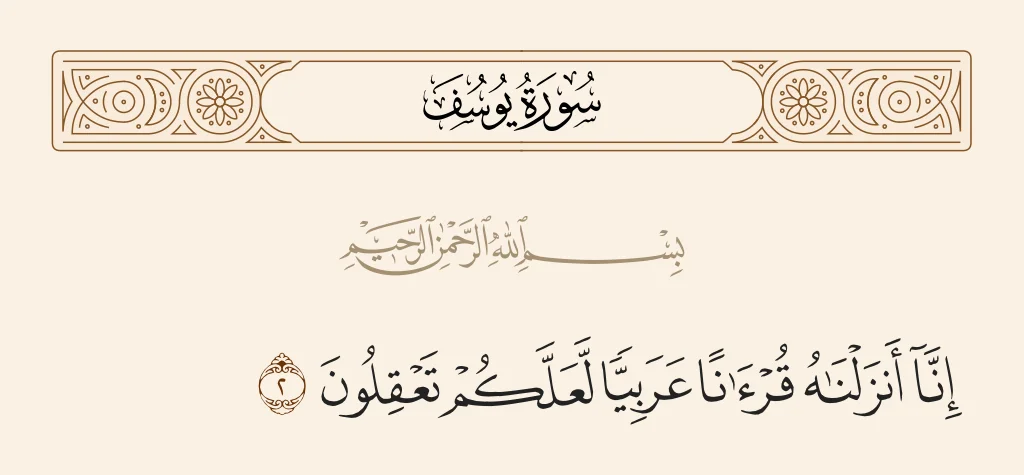 سُورَةُ يُوسُفَ
بِسْمِ ٱللَّهِ ٱلرَّحْمَٰنِ ٱلرَّحِيمِ
إِنَّآ أَنزَلْنَٰهُ قُرْءَٰنًا عَرَبِيًّا لَّعَلَّكُمْ تَعْقِلُونَ ٢